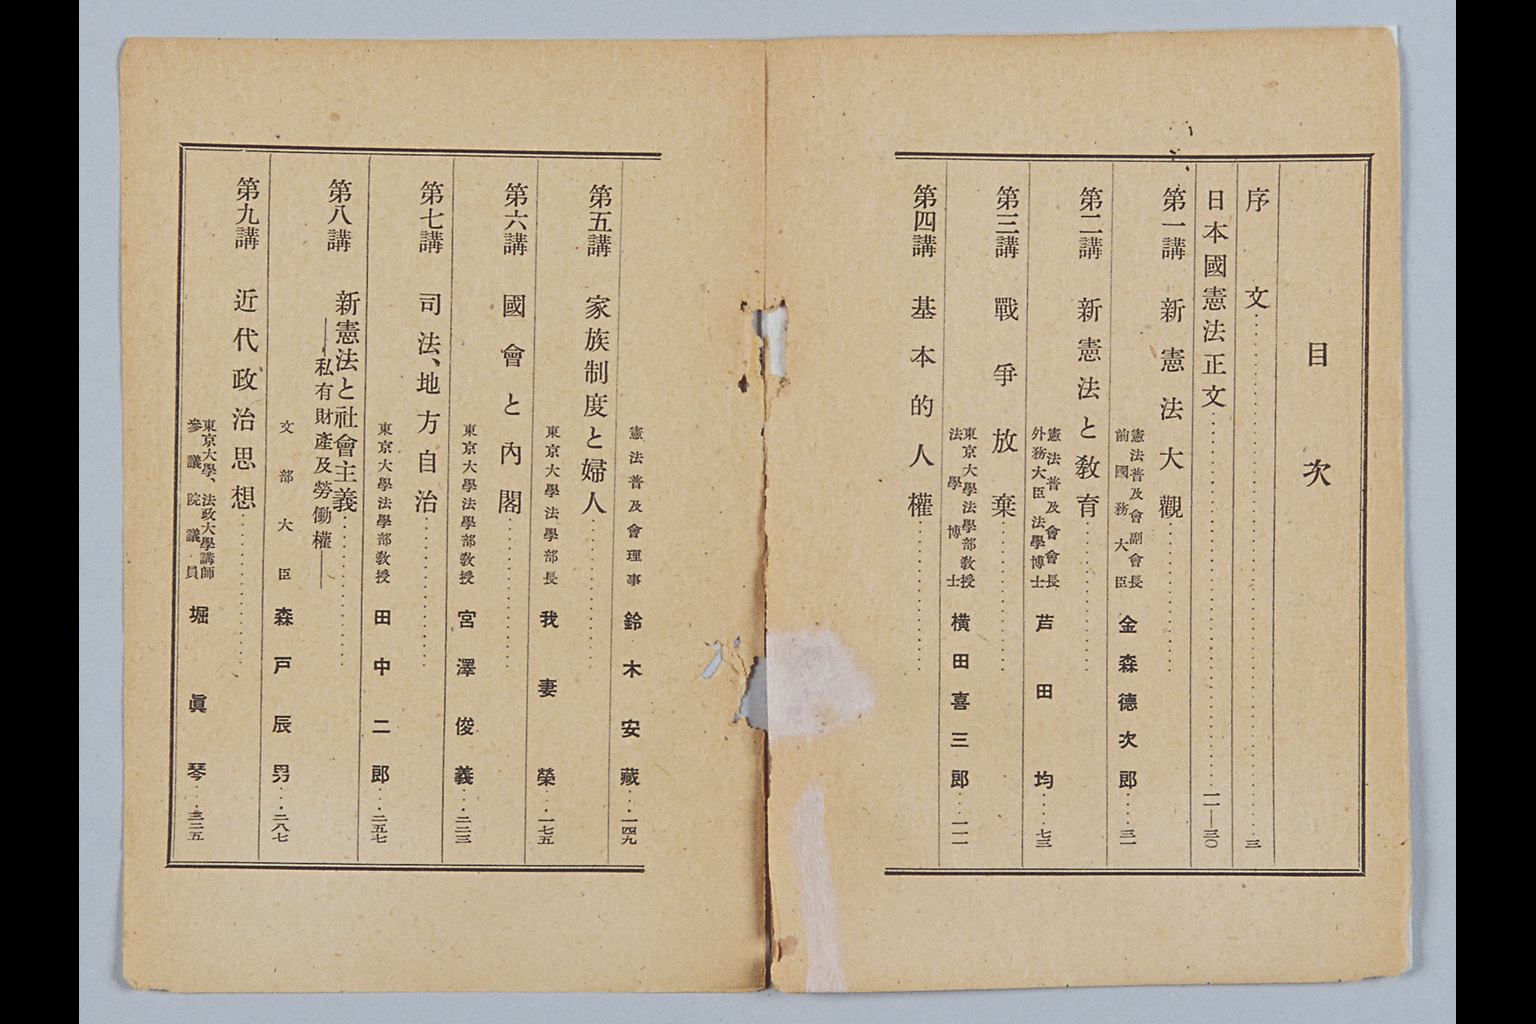 目次
序文 三
日本國憲法正文 一一—三〇
第一講 新憲法大觀
憲法普及會副會長
前國務大臣
金森德次郎 三一
第二講 新憲法と敎育
第三講 戰爭放棄
憲法普及會會長
外務大臣 法學博士
芦田均 七三
第四講 基本的人權
東京大學法學部敎授
法學博士
橫田喜三郎 一一一
第五講 家族制度と婦人
憲法普及會理事 鈴木安藏 一四九
第六講 國會と內閣
東京大學法學部長 我妻榮 一七五
第七講 司法、地方自治
東京大學法學部敎授 宮澤俊義 二二三
第八講 新憲法と社會主義
—私有財產及勞働權—
東京大學法學部敎授 田中二郎 二五七
第九講 近代政治思想
文部大臣 森戶辰男 二八七
東京大學、法政大學講師
參議院議員
堀眞琴 三二五